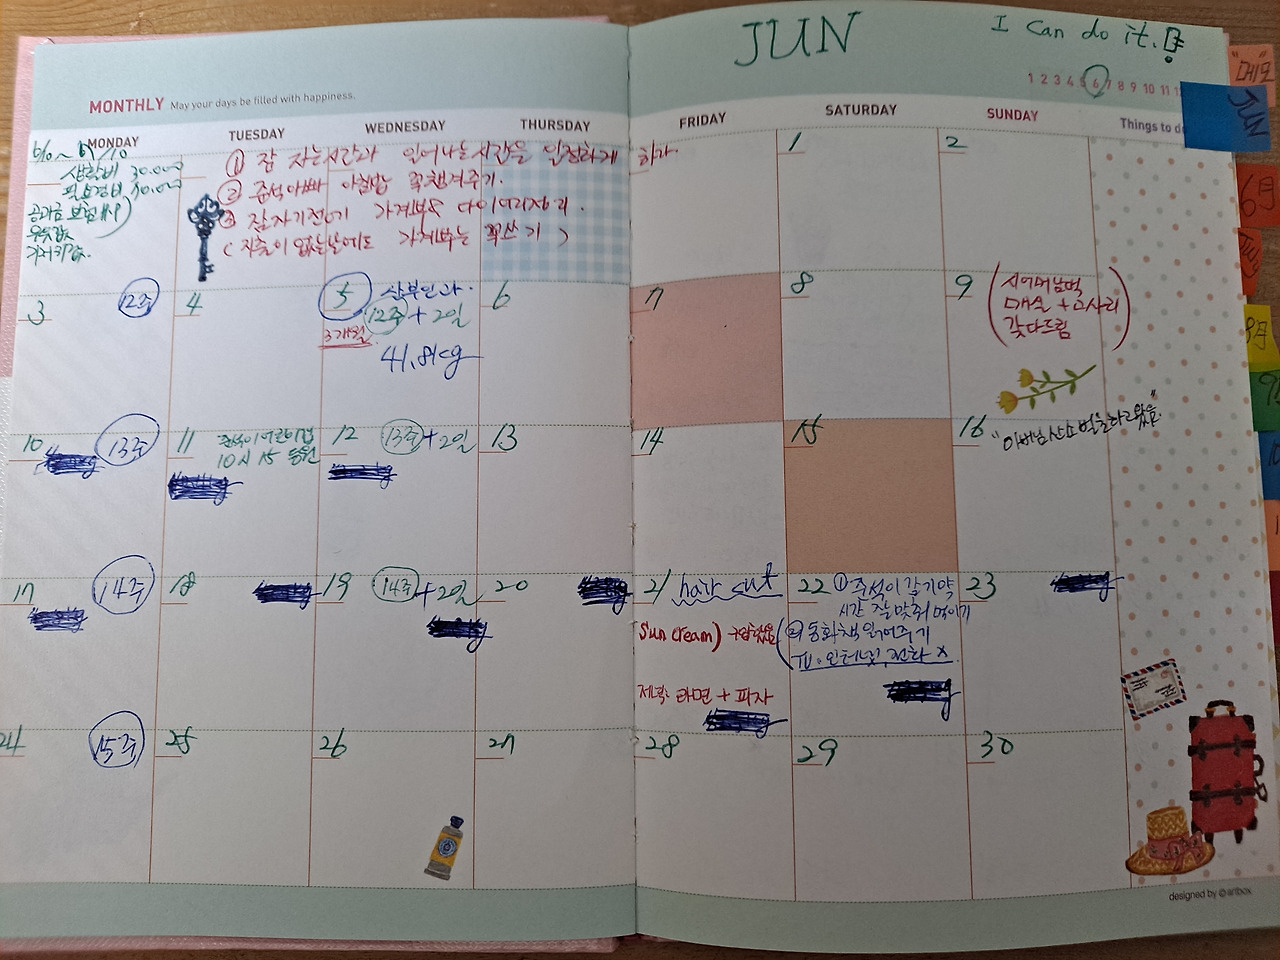 JUN
I can do it.!
1 2 3 4 5 6 7 8 9 10 11
"메모"
JUN
MONTHLY May your days be filled with happiness.
MONDAY TUESDAY WEDNESDAY THURSDAY FRIDAY SATURDAY SUNDAY Things to do
생활비 30.000
필요경비 10.000
공과금 보험
우유값
① 잠 자는시간과 일어나는시간을 일정하게 하자
② 준석아빠 아침밥 꼭챙겨주기.
③ 잠자기전에 가계부와 다이어리정리.
(지출이 없는날에도 가계부는 꼭쓰기)
1
2
6月
3 12주
4
5 산부인과.
12주 + 2일
3개월
41.8kg
6
7
8
9 (시어머님댁
매실 + 고사리
갖다드림)
10 13주
11 준석이어린이집
10시 15 등원
12 13주 + 2일
13
14
15
16 "아버님산소 벌초하고왔음."
17 14주
18
19 14주 + 2일
20
21 hair cut
Sun cream) 구입했음
저녁: 라면 + 피자
22 ① 준석이 감기약
시간 잘맞춰 먹이기
② 동화책 읽어주기
TV. 인터넷, 전화 X
23
24 15주
25
26
27
28
29
30
designed by @artbox